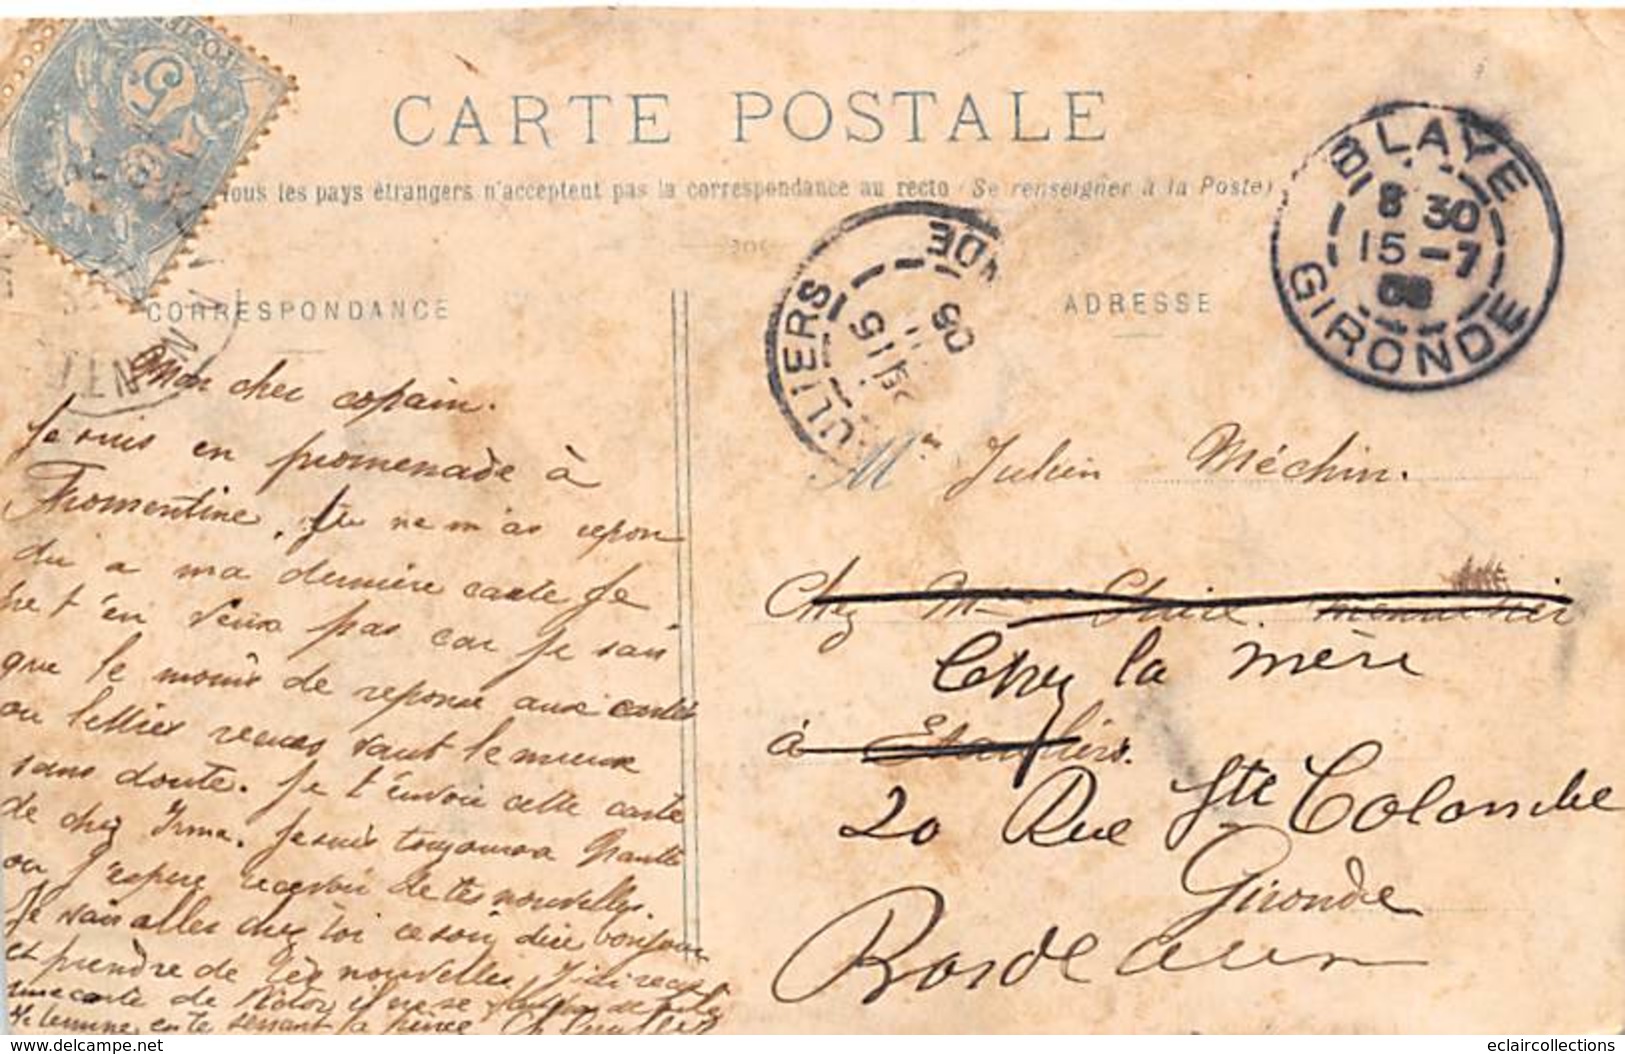 CARTE POSTALE
Tous les pays étrangers n'acceptent pas la correspondance au recto (Se renseigner à la Poste)
BLAYE
8 30
15 - 7
GIRONDE
ULIERS
05
CORRESPONDANCE
ADRESSE
Mon cher copain.
Je suis en promenade à
Fromentine. Tu ne m'as repon
du a ma dernière carte Je
ne t'en veux pas car je sais
que le moins de reponse aux cartes
ou lettres recues vaut le mieux
sans doute. Je t'envoie cette carte
de chez Irma. Je suis toujours
ou j'espere recevoir de tes nouvelles.
Je vais aller chez toi ce soir dire bonjour
et prendre de tes nouvelles J'ai reçu
une carte de
en te serrant la
Mr Julien Méchin.
Chez Mme
Chez la mère
à Etauliers.
20 Rue Ste Colombe
Gironde
Bordeaux
delcampe.net
eclaircollections